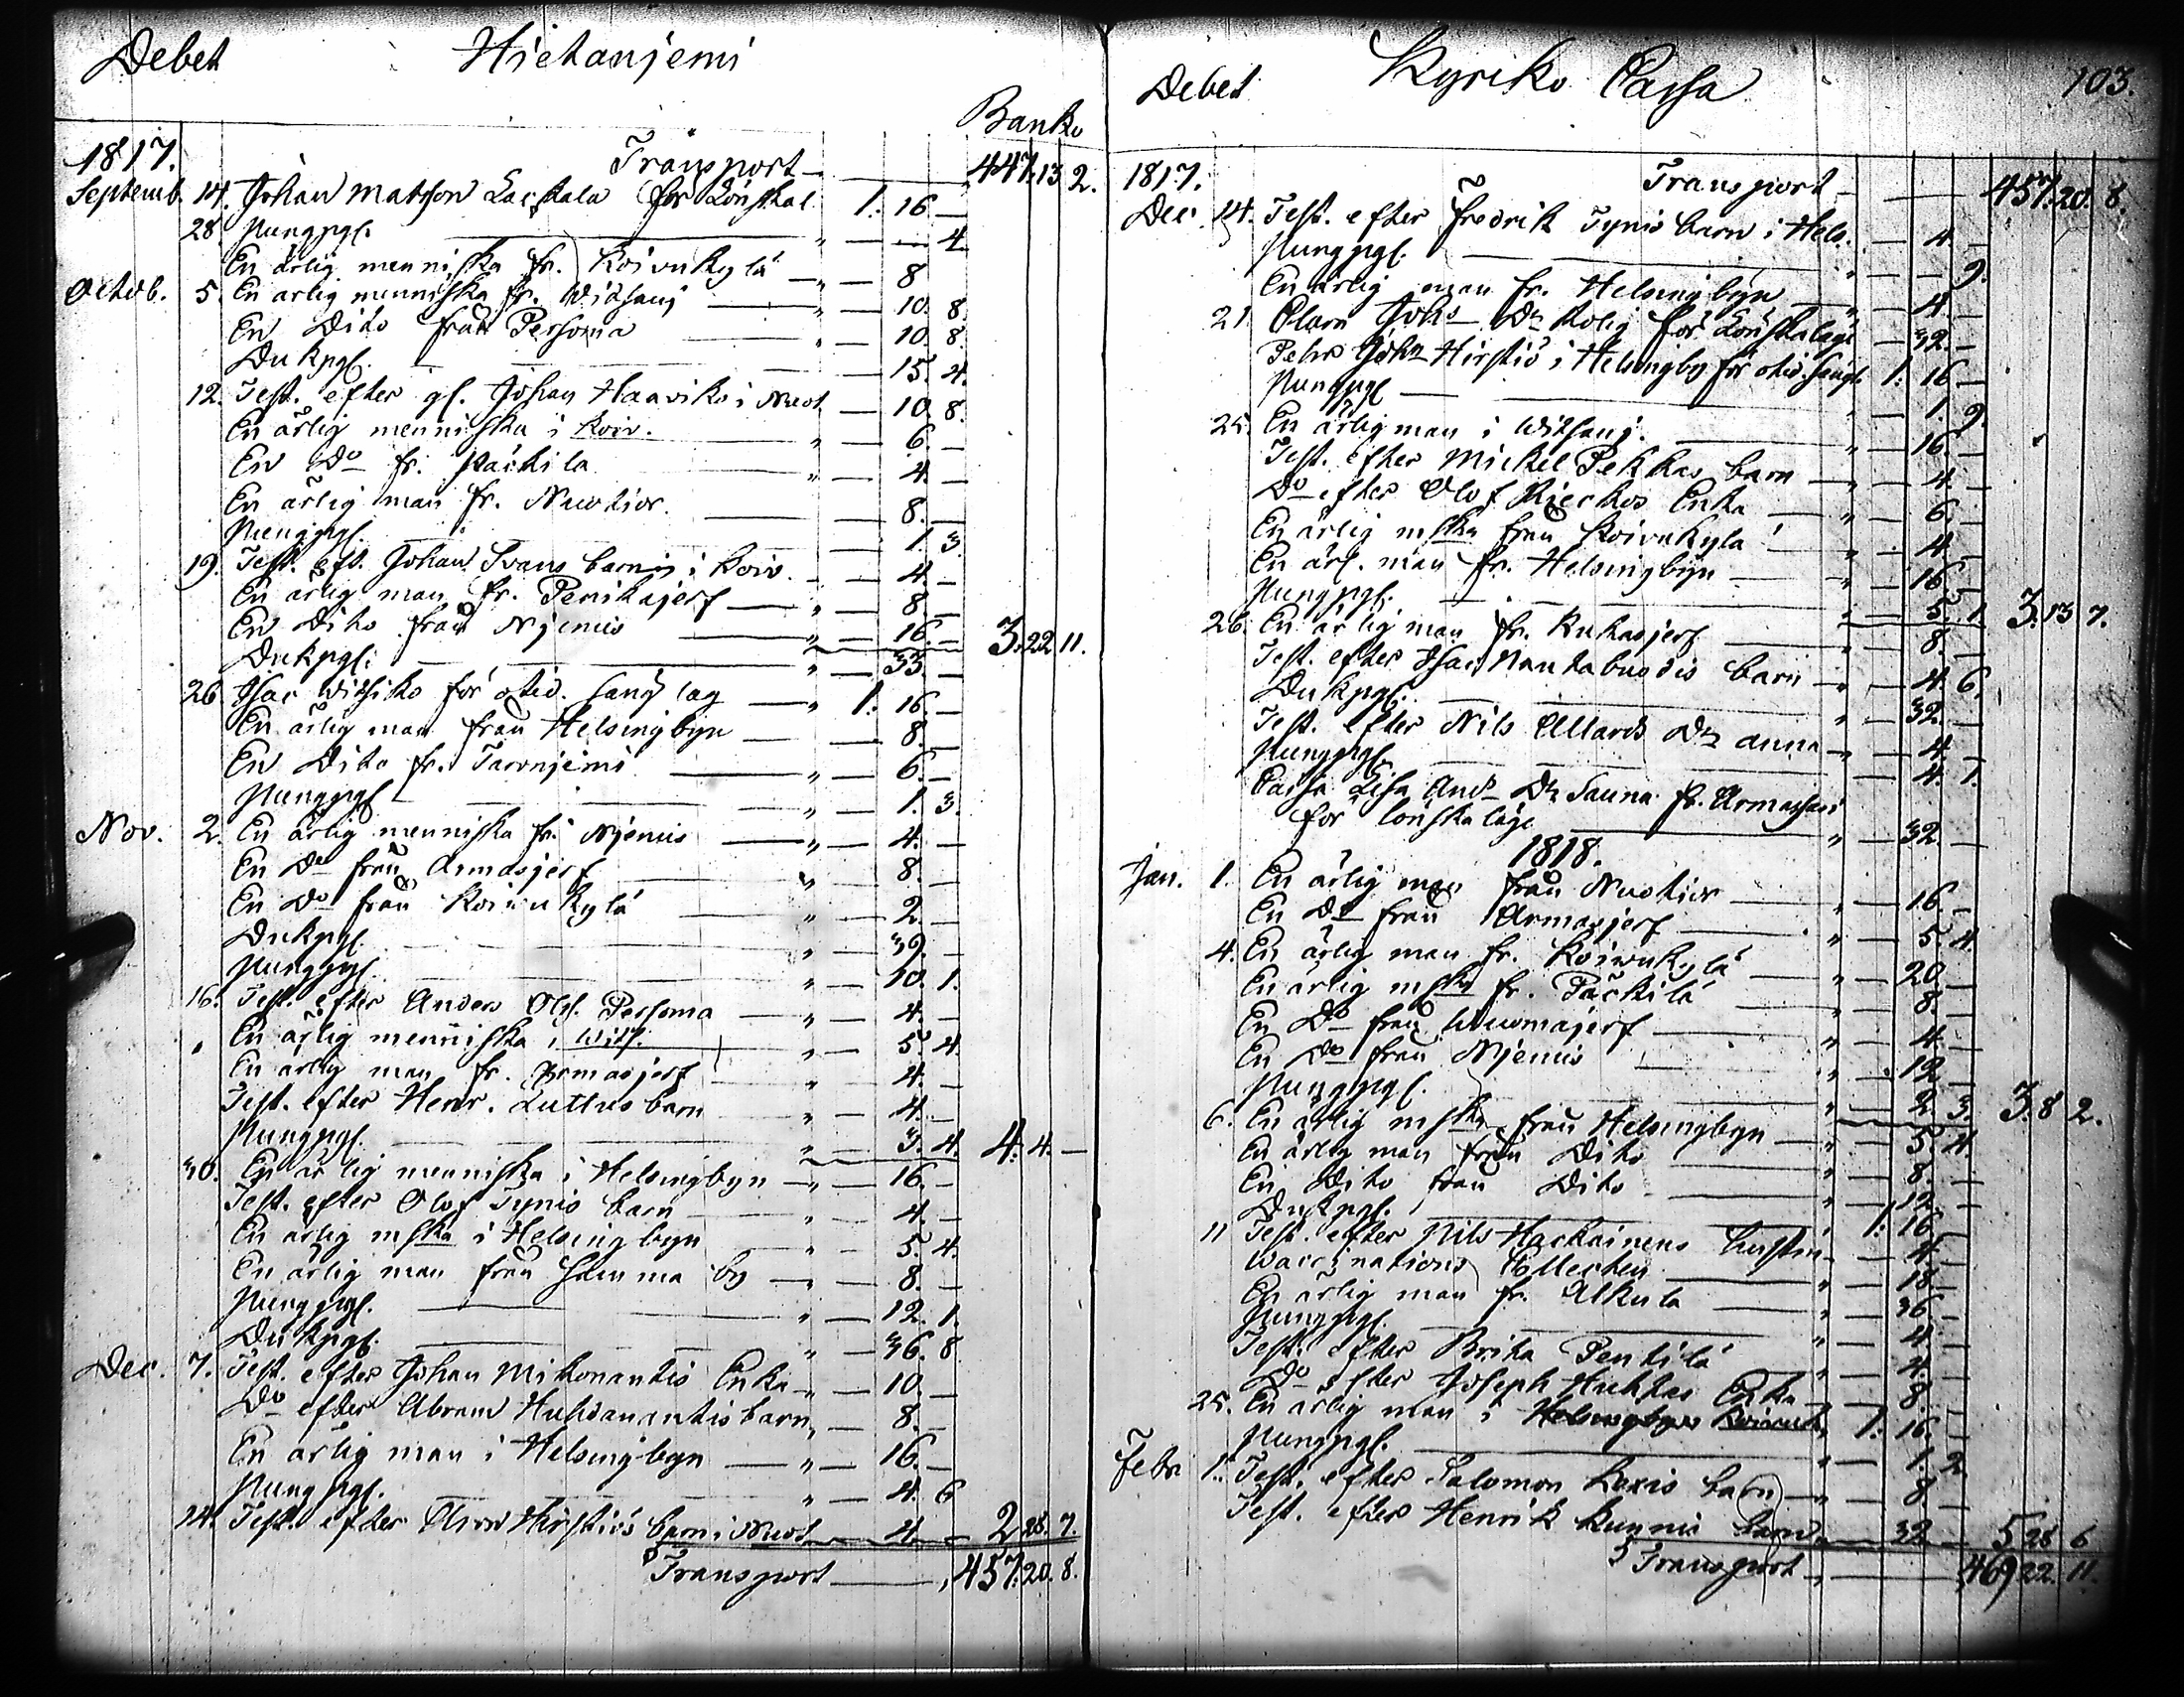 Debet Hietanjemi
Banko
1817. Transport 447. 13 2.
Septemb. 14. Johan Matsson för Lönskal 1: 16 —
28. Pungpgr. " — — 4
En ärlig menniska fr. Koivukylä " — 8
Octob. 5. En ärlig menniska fr. Witsanj " — 10. 8
En Dito från Persoma " — 10. 8.
Dukpgr. — 15. 4.
12. Test. efter gl. Johan Haaviko i Nuot — 10. 8.
En ärlig menniska i Koiv. " — 6. —
En Do fr. Päckila " — 4. —
En ärlig man fr. Nuotior. — 8. —
Pungpgr. — 1. 3.
19. Test. eft. Johan Svans barn i Koiv. — 4. —
En ärlig man fr. Penikajerf " — 8. —
En Dito från Njemis " — 16. — 3. 22 11.
Dukpgr. " — 33. —
26 Isac Witsiko för otid. sänglag " 1: 16. —
En ärlig man från Helsingbyn — 8. —
En Dito fr. Tavonjemi " — 6. —
Pungpgr. " — 1. 3.
Nov. 2. En ärlig menniska fr. Njemis " — 4. —
En Do från Armasjerf " — 8. —
En Do från Koivukylä " — 2. —
Dukpgr. " — 39. —
Pungpgr. " — 10. 1.
16. Test. efter Anders Ols. Persoma " — 4. —
En ärlig menniska i Wits. " — 5. 4.
En ärlig man fr. Armasjerf " — 4. —
Test. efter Henr. Luttus barn " — 4. —
Pungpgr. " — 3. 4. 4. 4. —
30. En ärlig menniska i Helsingbyn " — 16. —
Test. efter Olof Tynis barn " — 4. —
En ärlig mska i Helsingbyn " — 5. 4.
En ärlig man från Hamma by " — 8. —
Pungpgr. " — 12. 1.
Dukpgr. " — 36. 8
Dec. 7. Test. efter Johan Mikonantis Enka " — 10. —
Do efter Abram Huhdanantis barn " — 8. —
En ärlig man i Helsingbyn " — 16. —
Pungpgr. " — 4. 6
14. Test. efter Hirstiös barn i Nuot — 4. — 2 28. 7.
Transport 457. 20. 8.
Debet Kyrko Cassa 103.
1817. Transport 457. 20. 8.
Dec. 14. Test. efter Fredrik Tynis barn i Hels. — 4. —
Pungpgr. " — — 9.
En ärlig man fr. Helsingbyn " — 4. —
21. Johs Dr Kolij för Lönskaläge — 32. —
Pehr Johs Hirstiö i Helsingby för otid. sängl. 1: 16 —
Pungpgr. " — 1. 9.
25. En ärlig man i Witsanj. " — 16. —
Test. efter Mickel Pekkas barn " — 4. —
Do efter Olof Enka " — 6. —
En ärlig mska från Koivukylä " — 4. —
En ärl. man fr. Helsingbyn " — 16 —
Pungpgr. " — 5. 1. 3. 13 7.
26. En ärlig man fr. Kukasjerf " — 8. —
Test. efter Isac Nautabuodis barn " — 4. 6.
Dukpgr. " — 32. —
Test. efter Nils Allards Dr Anna " — 4. —
Pungpgr. — 4. 1.
Lisa And. Dr Sauna fr. Armassaari
för lönskaläge " — 32. —
1818.
Jan. 1. En ärlig man från Nuotior " — 16. —
En Do från Armasjerf " — 5. 4.
4. En ärlig man fr. Koivukylä " — 20. —
En ärlig mska fr. Päckilä " — 8. —
En Do från Wuomajerf " — 4. —
En Do från Njemis " — 12 —
Pungpgr. " — 2. 3. 3. 8 2.
6. En ärlig mska från Helsingbyn " — 5. 4.
En ärlig man från Dito " — 8. —
En Dito från Dito " — 12. —
Dukpgr. " 1: 16 —
11 Test. efter Nils Hackainens hustru — 4. —
Waccinations Collecten " — 18 —
En ärlig man fr. Alkula " — 36 —
Pungpgr. " — 4. —
Test. efter Brita Pentilä " — 4. —
Do efter Joseph Huhtas Enka " — 8. —
25. En ärlig man i Helsingbyn Koivuk. " 1: 16. —
Pungpgr. " — 1. 2
Febr. 1. Test. efter Salomon Lexis barn " — 8. —
Test. efter Henrik Kunnis barn — 32 — 5 28 6
Transport 469 22. 11.